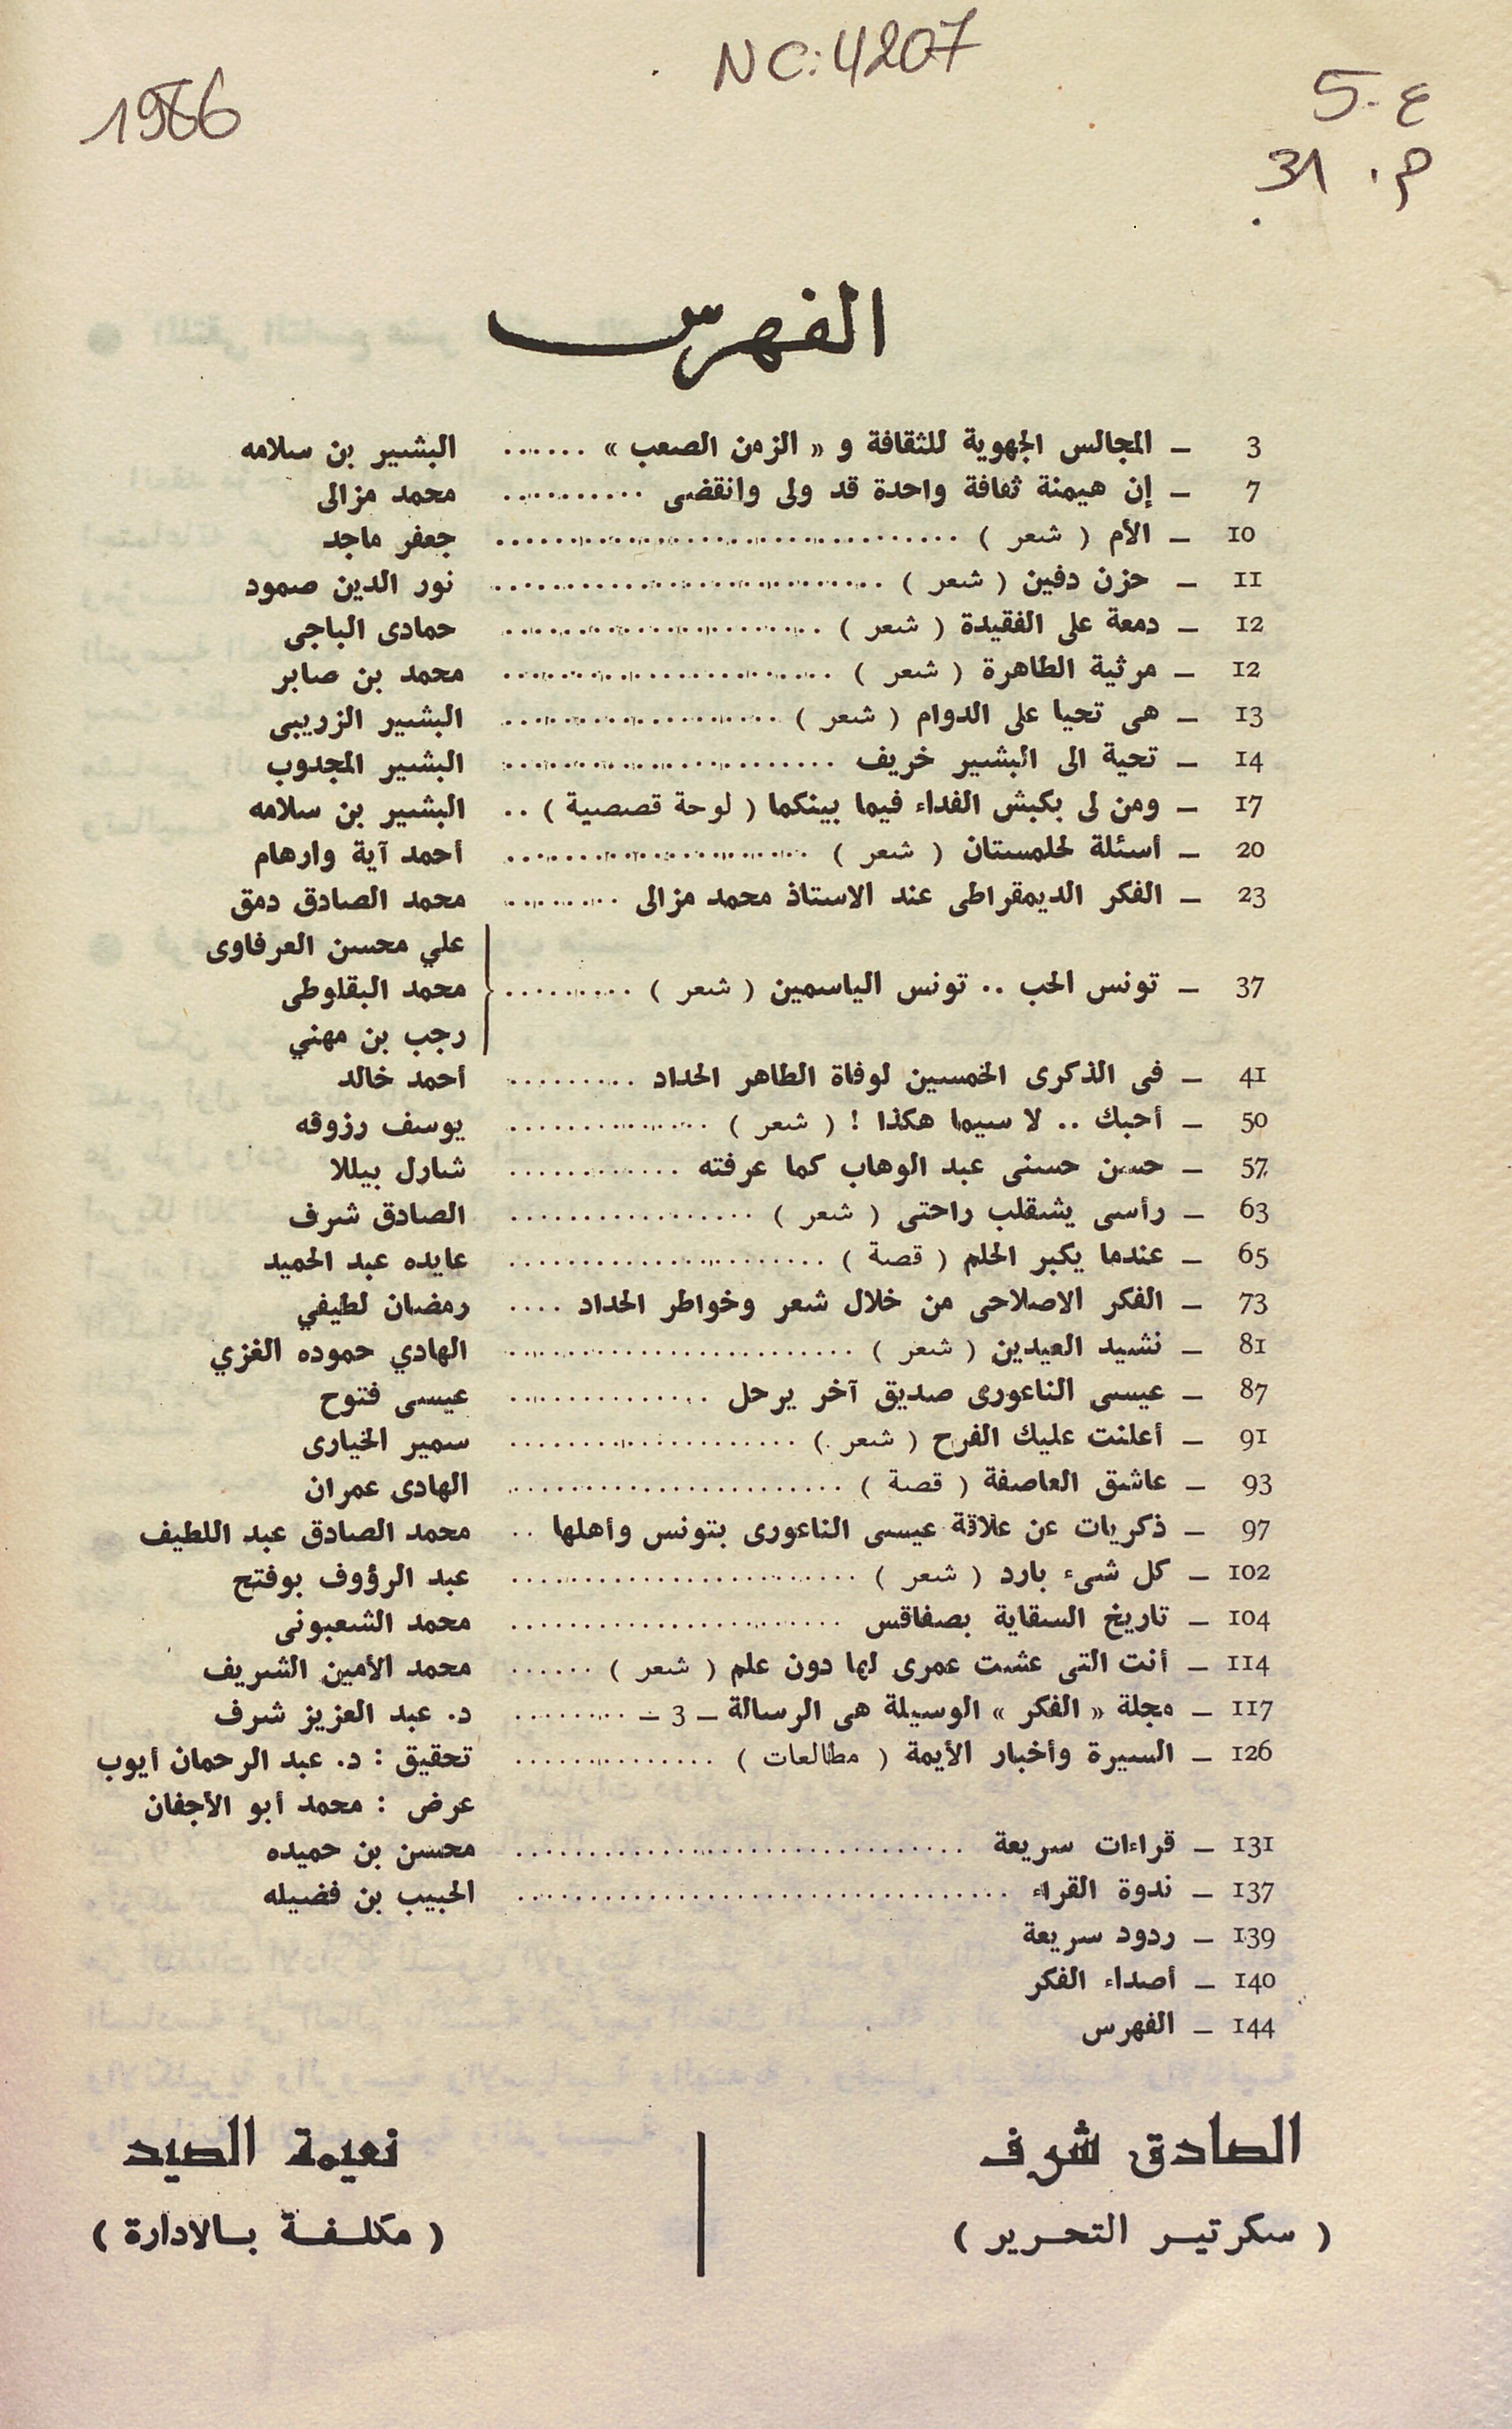 NC: 4207
1986
ع. 5
م. 31
الفهرس
3 – المجالس الجهوية للثقافة و « الزمن الصعب » ....... البشير بن سلامه
7 – إن هيمنة ثقافة واحدة قد ولى وانقضى .......... محمد مزالى
10 – الأم ( شعر ) .......... جعفر ماجد
11 – حزن دفين ( شعر ) .......... نور الدين صمود
12 – دمعة على الفقيدة ( شعر ) .......... حمادى الباجى
12 – مرثية الطاهرة ( شعر ) .......... محمد بن صابر
13 – هى تحيا على الدوام ( شعر ) .......... البشير الزريبى
14 – تحية الى البشير خريف .......... البشير المجدوب
17 – ومن لى بكبش الفداء فيما بينكما ( لوحة قصصية ) .. البشير بن سلامه
20 – أسئلة لحلمستان ( شعر ) .......... أحمد آية وارهام
23 – الفكر الديمقراطى عند الاستاذ محمد مزالى ......... محمد الصادق دمق
علي محسن العرفاوى
37 – تونس الحب .. تونس الياسمين ( شعر ) ......... محمد البقلوطى
رجب بن مهني
41 – فى الذكرى الخمسين لوفاة الطاهر الحداد ......... أحمد خالد
50 – أحبك .. لا سيما هكذا ! ( شعر ) .......... يوسف رزوقه
57 – حسن حسنى عبد الوهاب كما عرفته .......... شارل بيللا
63 – رأسى يشقلب راحتى ( شعر ) .......... الصادق شرف
65 – عندما يكبر الحلم ( قصة ) .......... عايده عبد الحميد
73 – الفكر الاصلاحى من خلال شعر وخواطر الحداد .... رمضان لطيفي
81 – نشيد العيدين ( شعر ) .......... الهادي حموده الغزي
87 – عيسى الناعورى صديق آخر يرحل .......... عيسى فتوح
91 – أعلنت عليك الفرح ( شعر ) .......... سمير الخيارى
93 – عاشق العاصفة ( قصة ) .......... الهادى عمران
97 – ذكريات عن علاقة عيسى الناعورى بتونس وأهلها .. محمد الصادق عبد اللطيف
102 – كل شىء بارد ( شعر ) .......... عبد الرؤوف بوفتح
104 – تاريخ السقاية بصفاقس .......... محمد الشعبونى
114 – أنت التى عشت عمرى لها دون علم ( شعر ) ...... محمد الأمين الشريف
117 – مجلة « الفكر » الوسيلة هى الرسالة – 3 – ......... د. عبد العزيز شرف
126 – السيرة وأخبار الأيمة ( مطالعات ) .......... تحقيق : د. عبد الرحمان أيوب
عرض : محمد أبو الأجفان
131 – قراءات سريعة .......... محسن بن حميده
137 – ندوة القراء .......... الحبيب بن فضيله
139 – ردود سريعة
140 – أصداء الفكر
144 – الفهرس
الصادق شرف
( سكرتير التحرير )
نعيمة الصيد
( مكلفة بالادارة )